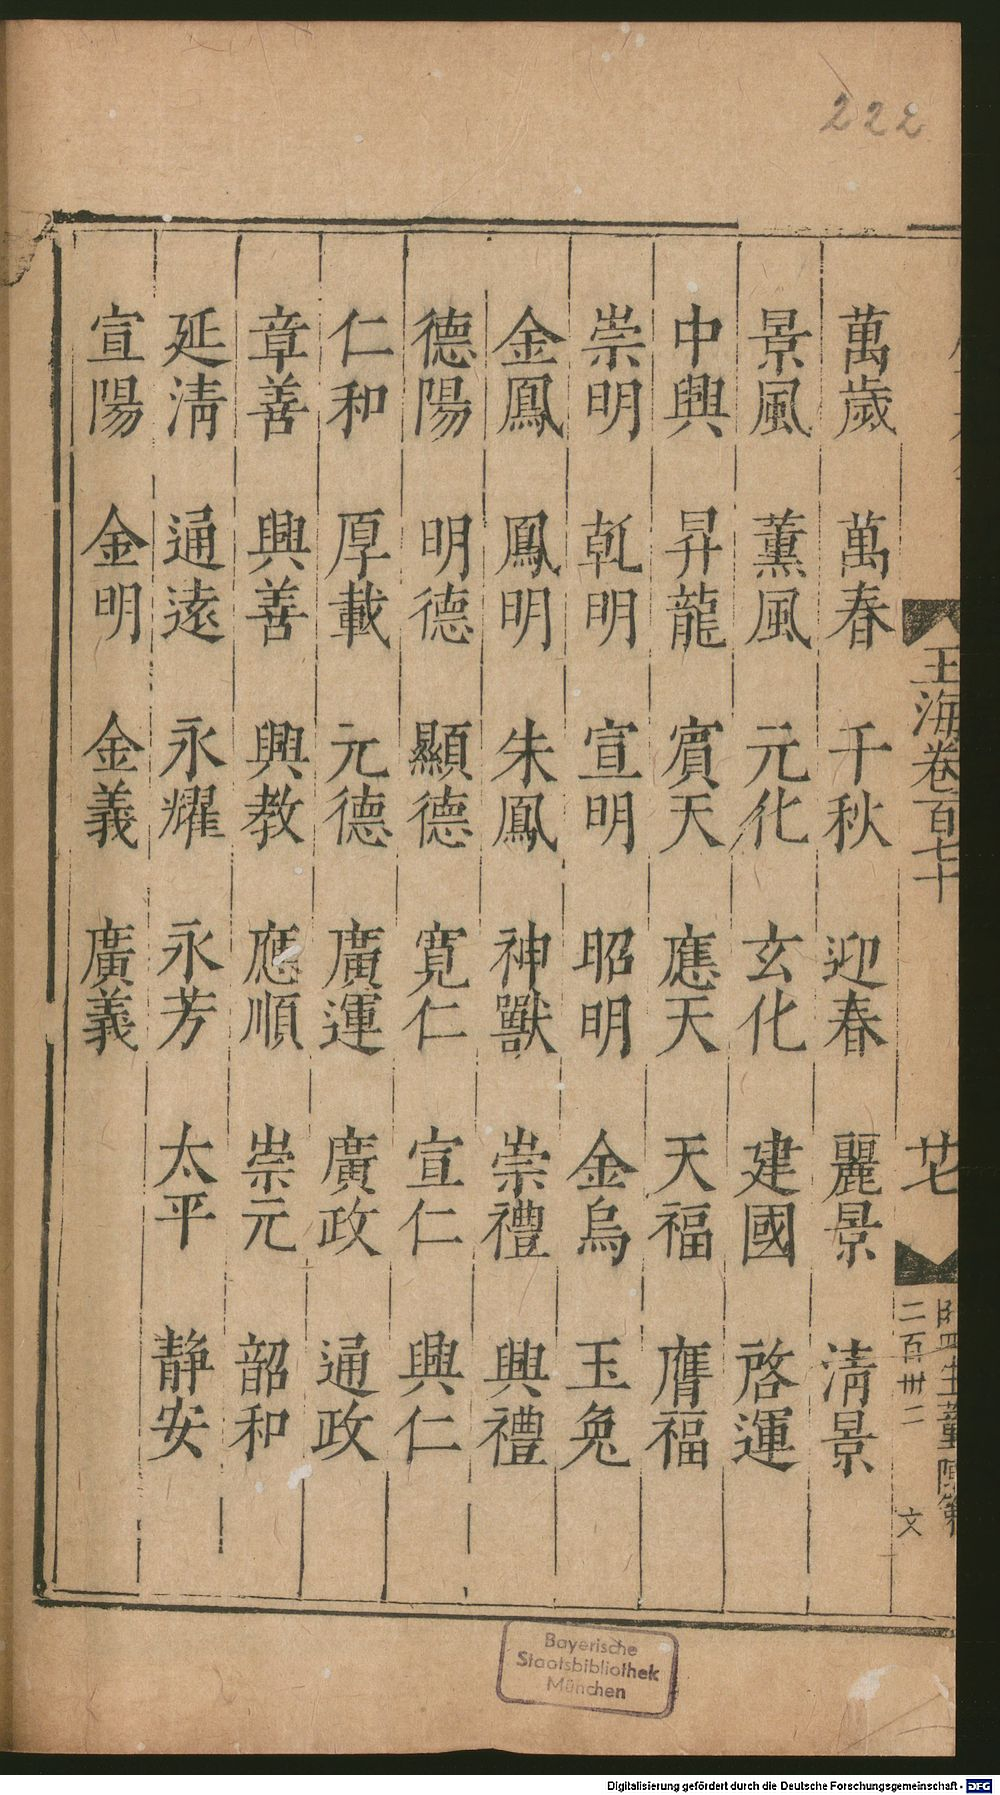 222
玉海卷百七十
廿七
二百卅二
文
萬歲 萬春 千秋 迎春 麗景 淸景
景風 薰風 元化 玄化 建國 啓運
中興 昇龍 賔天 應天 天福 膺福
崇明 乹明 宣明 昭明 金烏 玉兔
金鳳 鳳明 朱鳳 神獸 崇禮 興禮
德陽 明德 顯德 寛仁 宣仁 興仁
仁和 厚載 元德 廣運 廣政 通政
章善 興善 興教 應順 崇元 韶和
延淸 通遠 永耀 永芳 太平 静安
宣陽 金明 金義 廣義
Bayerische
Staatsbibliothek
München
Digitalisierung gefördert durch die Deutsche Forschungsgemeinschaft - DFG